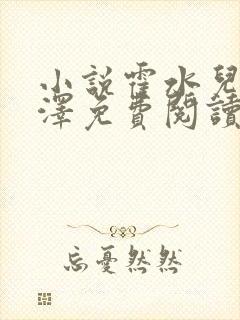 小說霍水兒
澤免費閱讀
忘憂然然